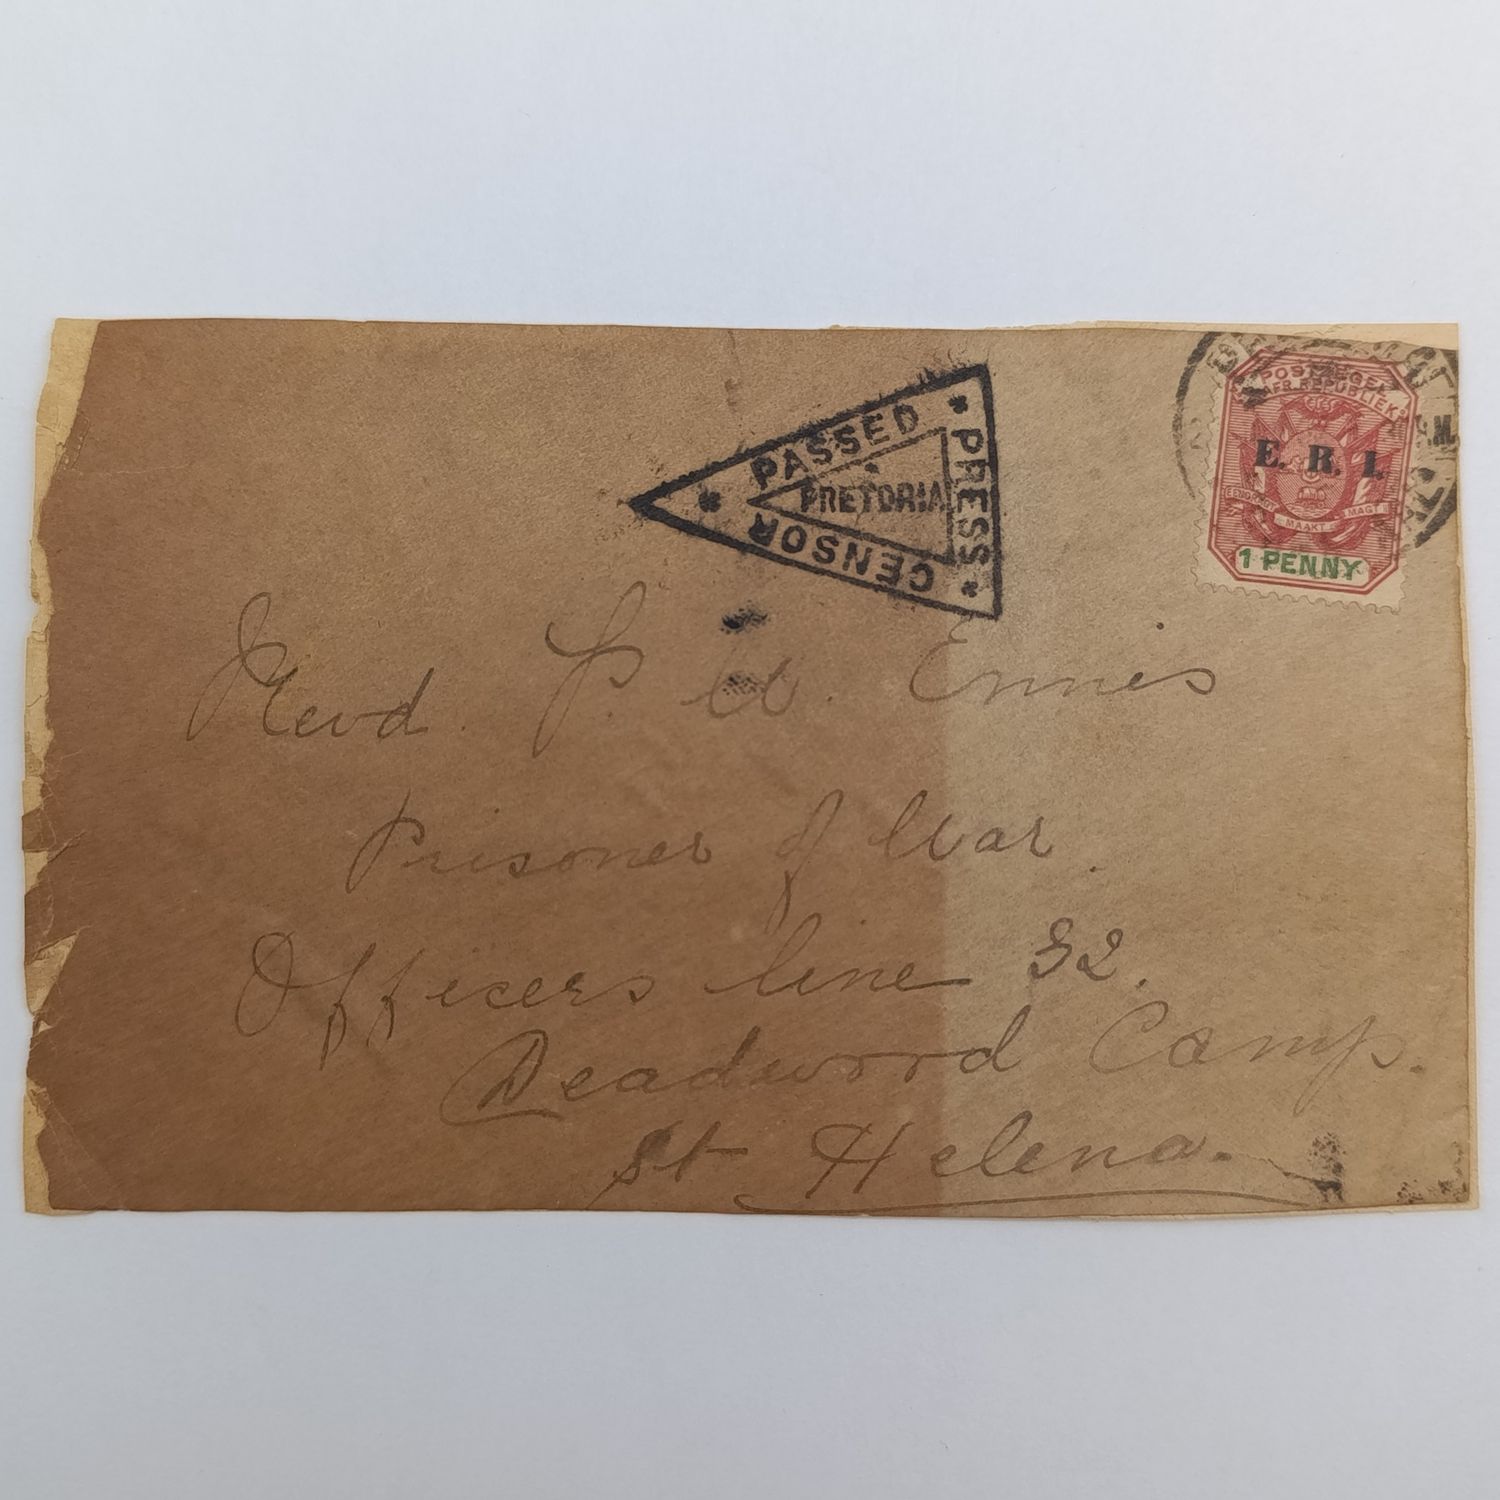 PASSED
PRESS
CENSOR
PRETORIA
POSTZEGEL
AFR. REPUBLIEK
E. R. I.
EENDRAGT MAAKT MAGT
1 PENNY
Revd. P. W. Ennis
Prisoner of War.
Officers line 32.
Deadwood Camp.
St Helena.